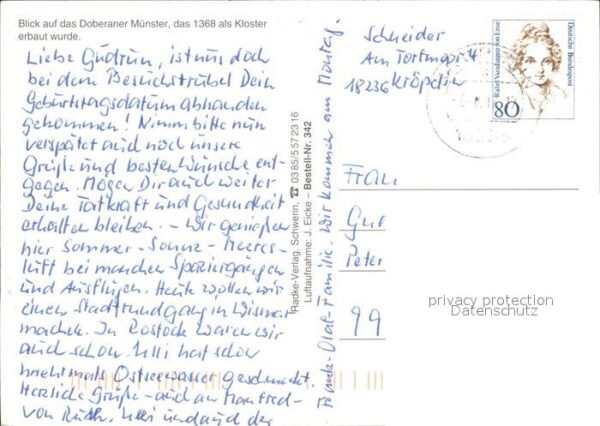 Blick auf das Doberaner Münster, das 1368 als Kloster
erbaut wurde.
Liebe Gudrun, ist uns doch
bei dem Besuchstrubel Dein
Geburtstagsdatum abhanden
gekommen! Nimm bitte nun
verspätet auch noch unsere
Grüße und besten Wünsche ent-
gegen. Mögen Dir auch weiter
Deine Tatkraft und Gesundheit
erhalten bleiben. – Wir genießen
hier Sommer – Sonne – Meeres-
luft bei manchen Spaziergängen
und Ausflügen. Heute wollen wir
einen Stadtrundgang in Wismar
machen. In Rostock waren wir
auch schon. Ulli hat schon
mehrmals Ostseewasser geschmeckt
Herzliche Grüße – auch an Manfred –
von Ruth, Ulli und auch der
Frank-Olaf-Familie. Wir kommen am Montag.
Radke-Verlag, Schwerin, ☎ 0385/5572316
Luftaufnahme: J. Eicke – Bestell-Nr. 342
Schneider
Am Tortmoor 4
18236 Kröpelin
Rahel Varnhagen von Ense
Deutsche Bundespost
80
Frau
Gu
Peter
99
privacy protection
Datenschutz